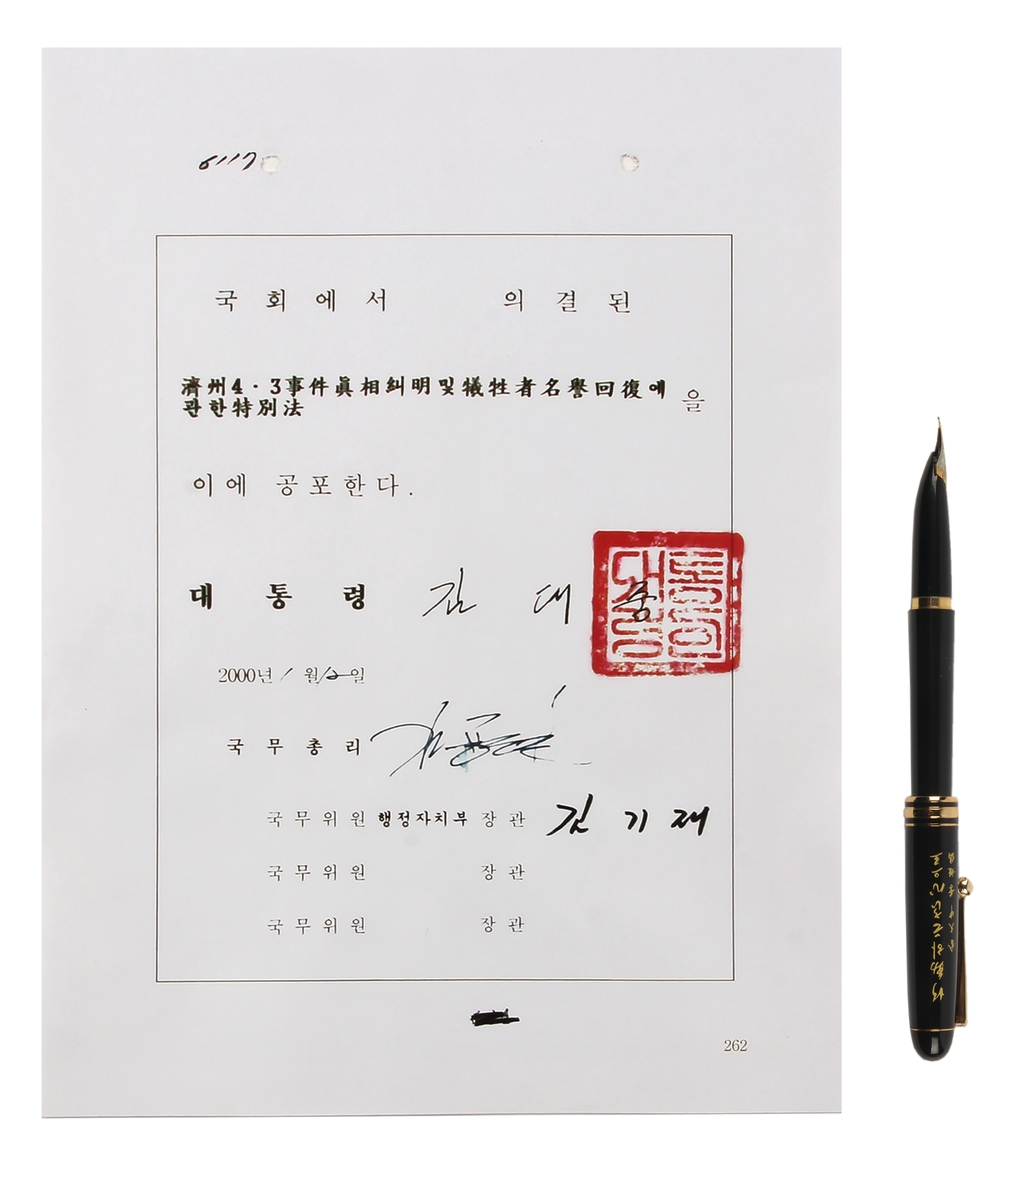 6117
국회에서 의결된
濟州4·3事件眞相糾明및犧牲者名譽回復에
관한特別法 을
이에 공포한다.
대통령 김대중
대통령의인
2000년 1월 12일
국무총리
국무위원 행정자치부 장관 김기재
국무위원 장관
국무위원 장관
262